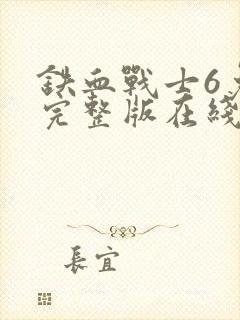 鉄血戰士6
完整版在綫
長宜